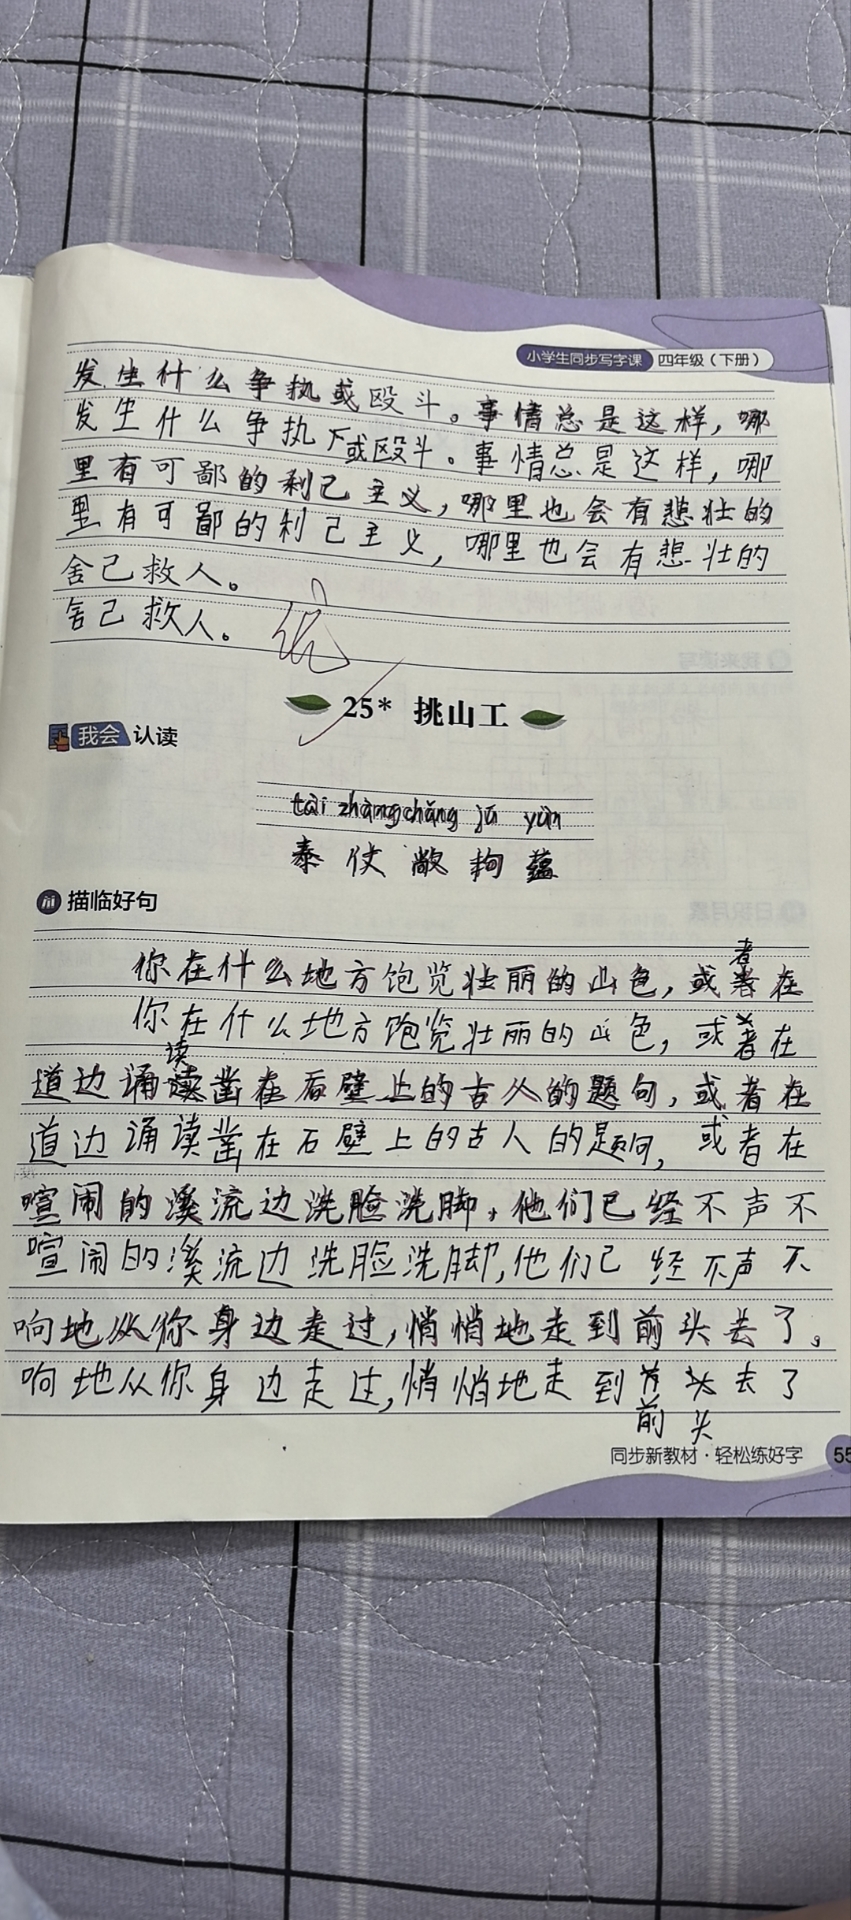 小学生同步写字课 四年级（下册）
发生什么争执或殴斗。事情总是这样，哪
发生什么争执下或殴斗。事情总是这样，哪
里有可鄙的利己主义，哪里也会有悲壮的
里有可鄙的利己主义，哪里也会有悲壮的
舍己救人。
舍己救人。
优
25* 挑山工
我会 认读
tài zhàng chǎng jū yùn
泰 仗 敞 拘 蕴
描临好句
者
你在什么地方饱览壮丽的山色，或者在
你在什么地方饱览壮丽的山色，或者在
读
道边诵读凿在石壁上的古人的题句，或者在
道边诵读凿在石壁上的古人的题句，或者在
喧闹的溪流边洗脸洗脚，他们已经不声不
喧闹的溪流边洗脸洗脚，他们已经不声不
响地从你身边走过，悄悄地走到前头去了。
响地从你身边走过，悄悄地走到前头去了
前 头
同步新教材·轻松练好字 55